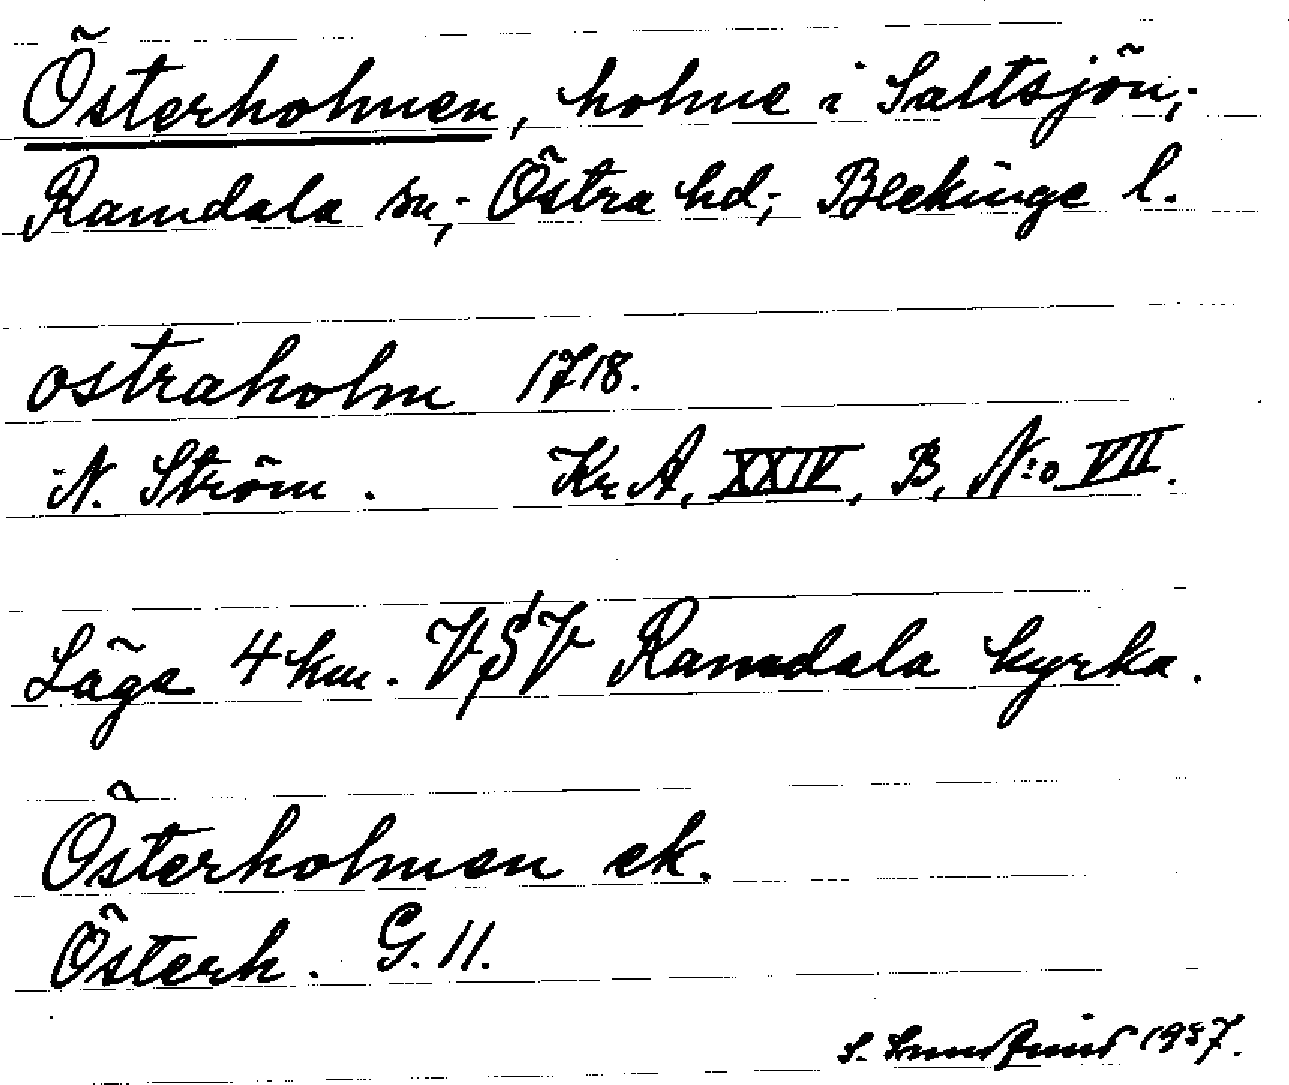 Österholmen, holme i Saltsjön;-
Ramdala sn;- Östra hd; Blekinge l.
ostraholm 1718.
N. Ström. Kr A, XXIV, B, N:o VII.
Läge 4 km. VSV Ramdala kyrka.
Österholmen ek.
Österh. G. 11.
S. 1937.